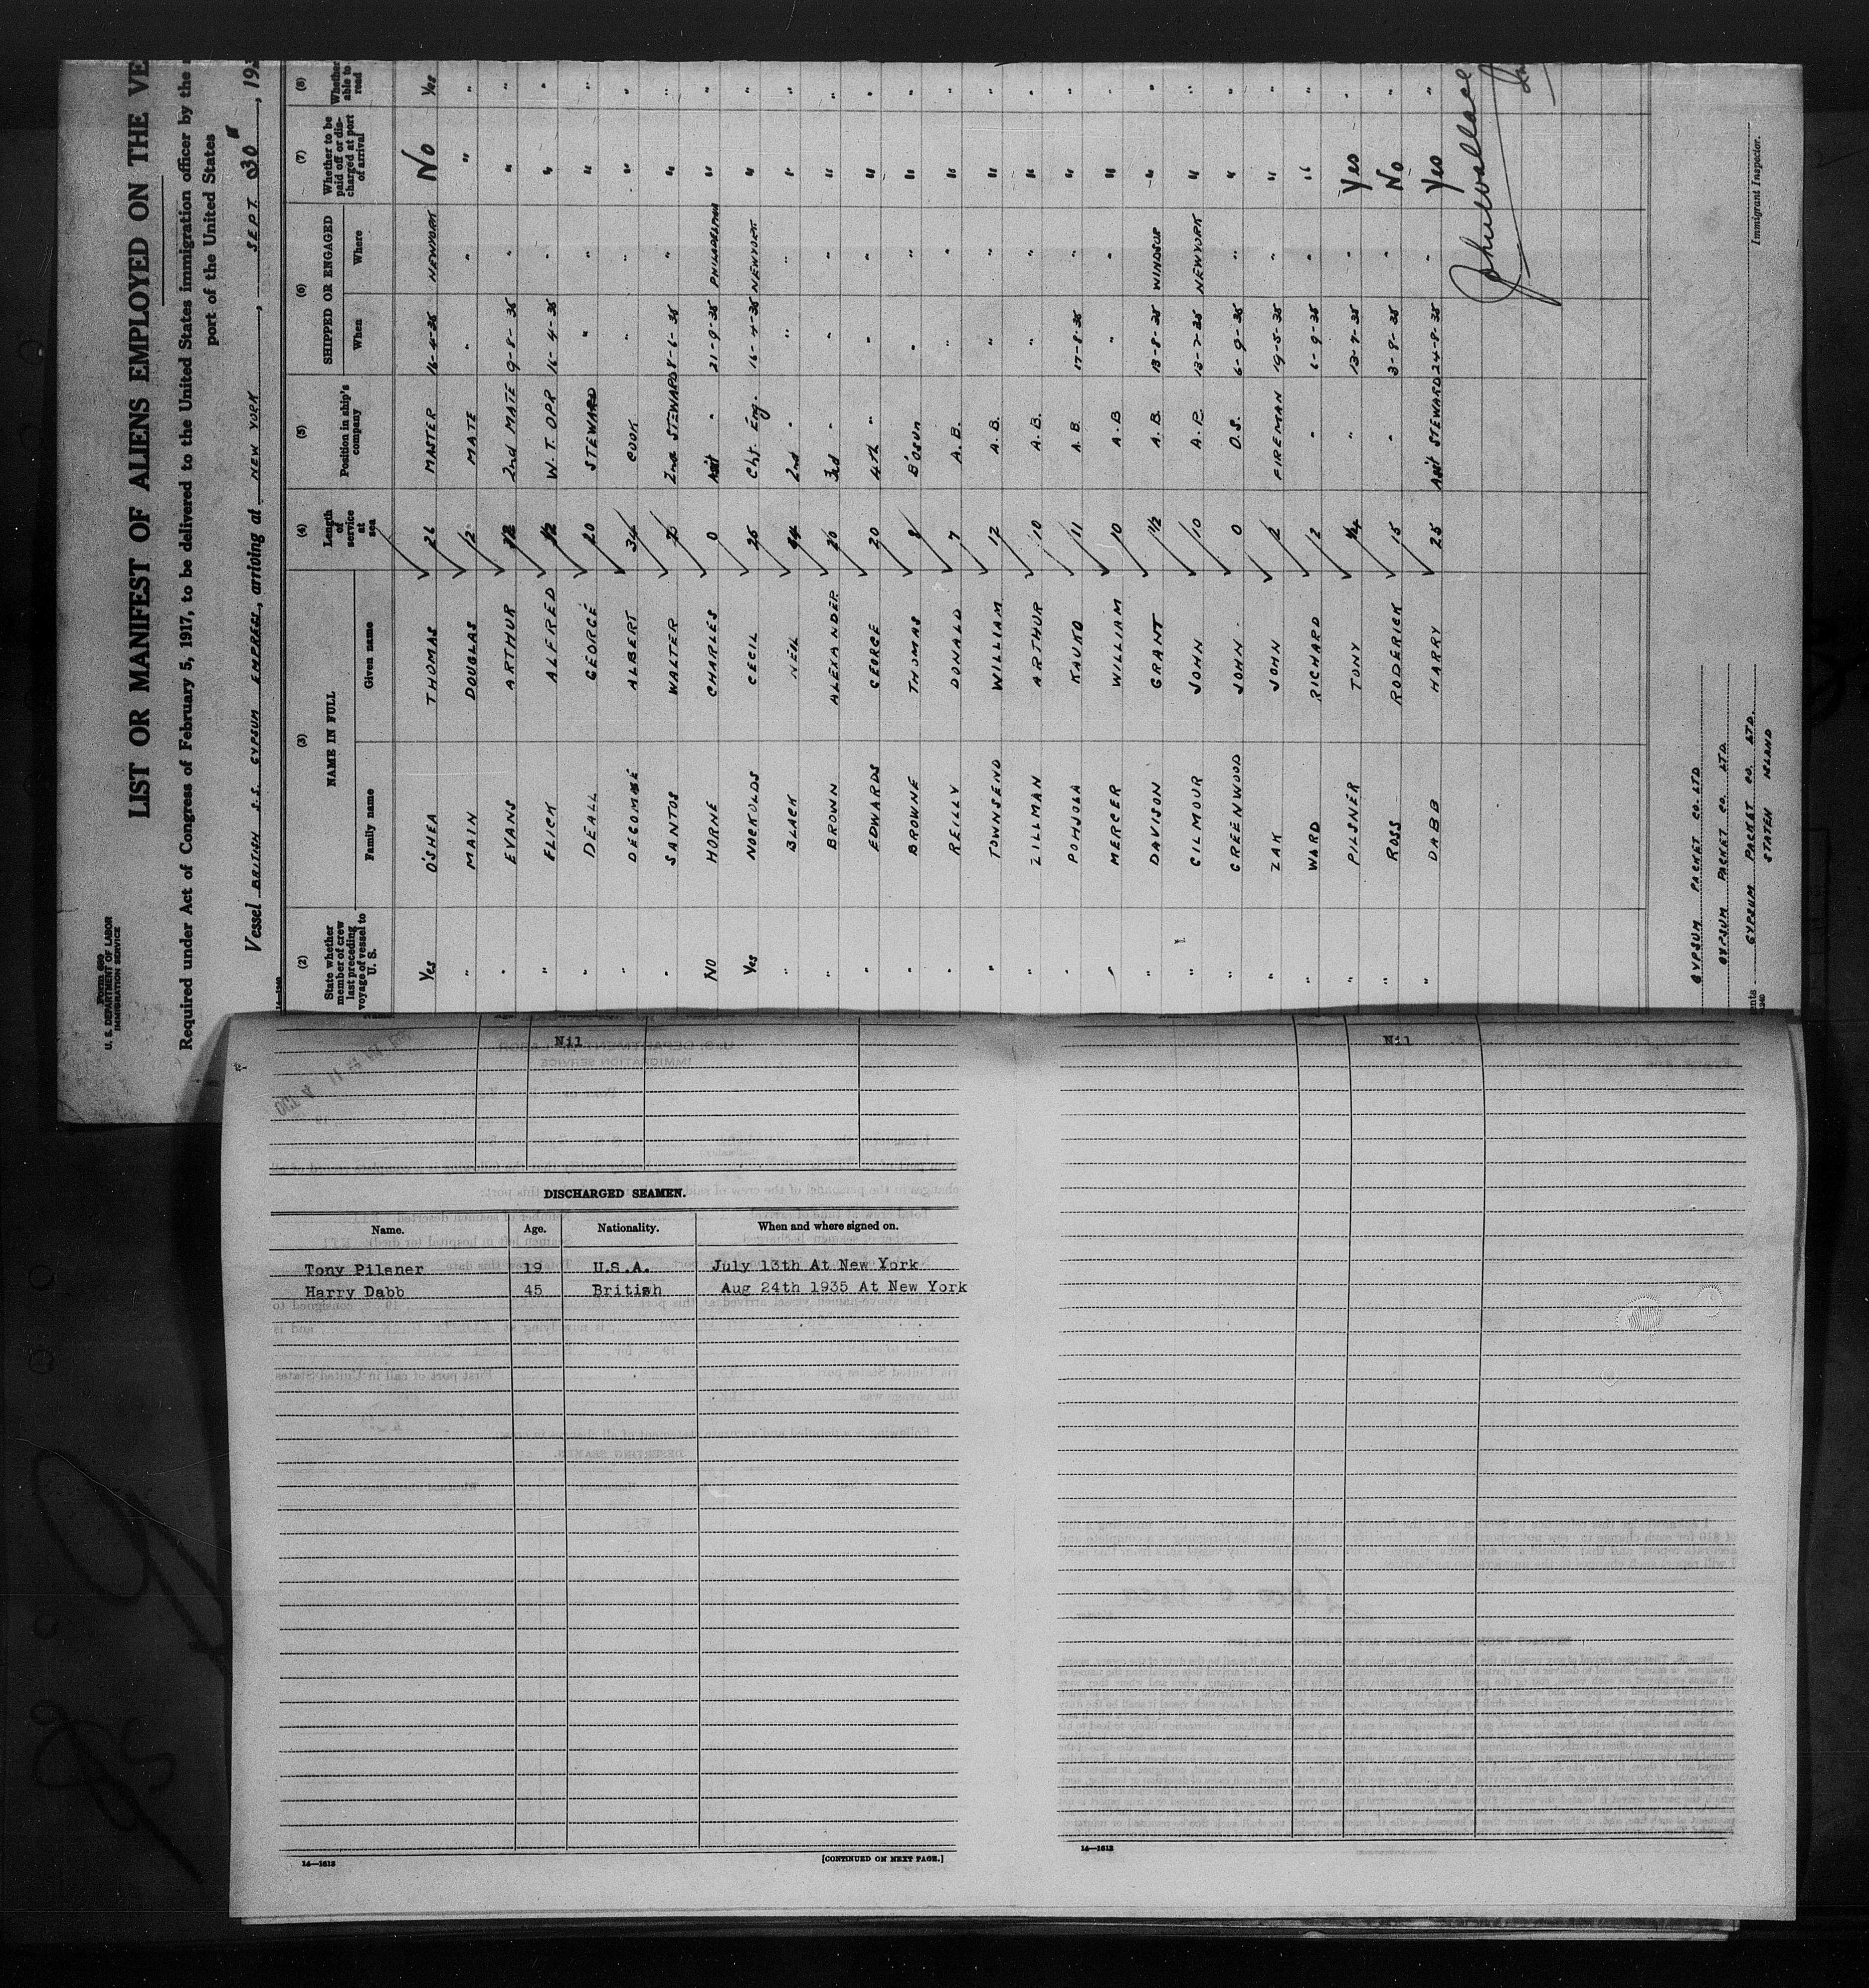 Form 689
U. S. DEPARTMENT OF LABOR
IMMIGRATION SERVICE
LIST OR MANIFEST OF ALIENS EMPLOYED ON THE VE
Required under Act of Congress of February 5, 1917, to be delivered to the United States immigration officer by the
port of the United States
Vessel BRITISH S.S. GYPSUM EMPRESS, arriving at NEW YORK, SEPT. 30, 193
(2) (3) (4) (5) (6) (7) (8)
State whether member of crew last preceding voyage of vessel to U. S. NAME IN FULL Family name Given name Length of service at sea Position in ship's company SHIPPED OR ENGAGED When Where Whether to be paid off or discharged at port of arrival Whether able to read
Yes O'SHEA THOMAS 26 MASTER 16-4-35 NEWYORK No Yes
" MAIN DOUGLAS 12 MATE " " " "
" EVANS ARTHUR 2nd MATE 9-8-35 " " "
" FLICK ALFRED W.T. OPR 16-4-35 " " "
" DEALL GEORGE 20 STEWARD " " " "
" DECOMBE ALBERT COOK " " " "
" SANTOS WALTER 2nd STEWARD 8-6-35 " " "
NO HORNE CHARLES 0 Asst " 21-9-35 PHILADELPHIA " "
Yes NOCKOLDS CECIL 25 Chf. Eng. 16-4-35 NEWYORK " "
" BLACK NEIL 2nd " " " " "
" BROWN ALEXANDER 20 3rd " " " " "
" EDWARDS GEORGE 20 4th " " " " "
" BROWNE THOMAS 8 B'OSUN " " " "
" REILLY DONALD 7 A.B. " " " "
" TOWNSEND WILLIAM 12 A.B. " " " "
" ZILLMAN ARTHUR 10 A.B. " " " "
" POHJOLA KAUKO 11 A.B. 17-8-35 " " "
" MERCER WILLIAM 10 A.B " " " "
" DAVISON GRANT 1/2 A.B. 13-8-35 WINDSOR " "
" GILMOUR JOHN 10 A.B. 13-7-35 NEWYORK " "
" GREENWOOD JOHN 0 O.S. 6-9-35 " " "
" ZAK JOHN 2 FIREMAN 19-5-35 " " "
" WARD RICHARD 2 " 6-9-35 " " "
" PILSNER TONY " 13-7-35 " Yes "
" ROSS RODERICK 15 " 3-8-35 " No "
" DABB HARRY 25 Asst STEWARD 24-8-35 " Yes "
John Wallace
Immigrant Inspector.
GYPSUM PACKET CO. LTD
GYPSUM PACKET CO. LTD
GYPSUM PACKET CO. LTD.
STATEN ISLAND
Nil
DISCHARGED SEAMEN.
Name. Age. Nationality. When and where signed on.
Tony Pilsner 19 U.S.A. July 13th At New York
Harry Dabb 45 British Aug 24th 1935 At New York
14—1613
[CONTINUED ON NEXT PAGE.]
Nil
14—1613